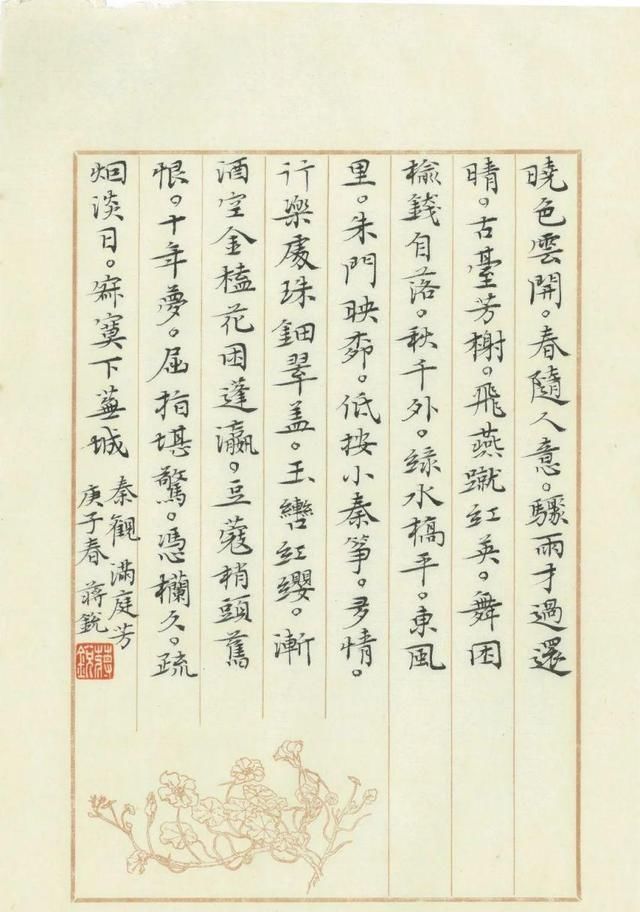 曉色雲開。春隨人意。驟雨才過還
晴。古臺芳榭。飛燕蹴紅英。舞困
榆錢自落。秋千外。綠水橋平。東風
里。朱門映柳。低按小秦箏。多情。
行樂處珠鈿翠蓋。玉轡紅纓。漸
酒空金榼花困蓬瀛。豆蔻梢頭舊
恨。十年夢。屈指堪驚。憑欄久。疏
烟淡日。寂寞下蕪城
秦觀 滿庭芳
庚子春 蔣銳
蔣銳